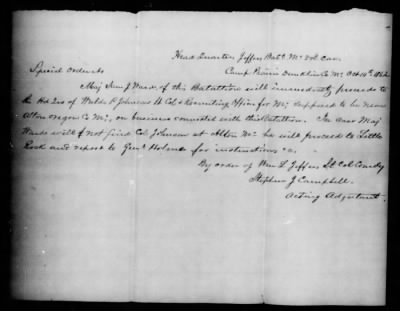 Head Quarters Jeffers Batt. Mo Vol Cav.
Camp Prairie Dunklin Co Mo. Oct 10th 1862
Special Orders No
Maj Sam J Ward, of this Battalion will immediately proceed to
the Hd Qrs of Waldo P Johnson Lt Col & Recruiting Officer for Mo, supposed to be near
Alton Oregon Co Mo, on business connected with this Battalion. In case Maj
Ward will not find Col Johnson at Alton Mo he will proceed to Little
Rock and report to Genl Holmes for instructions &c.
By order of Wm L Jeffers Lt Col Comdg
Stephen J Campbell.
Acting Adjutant.